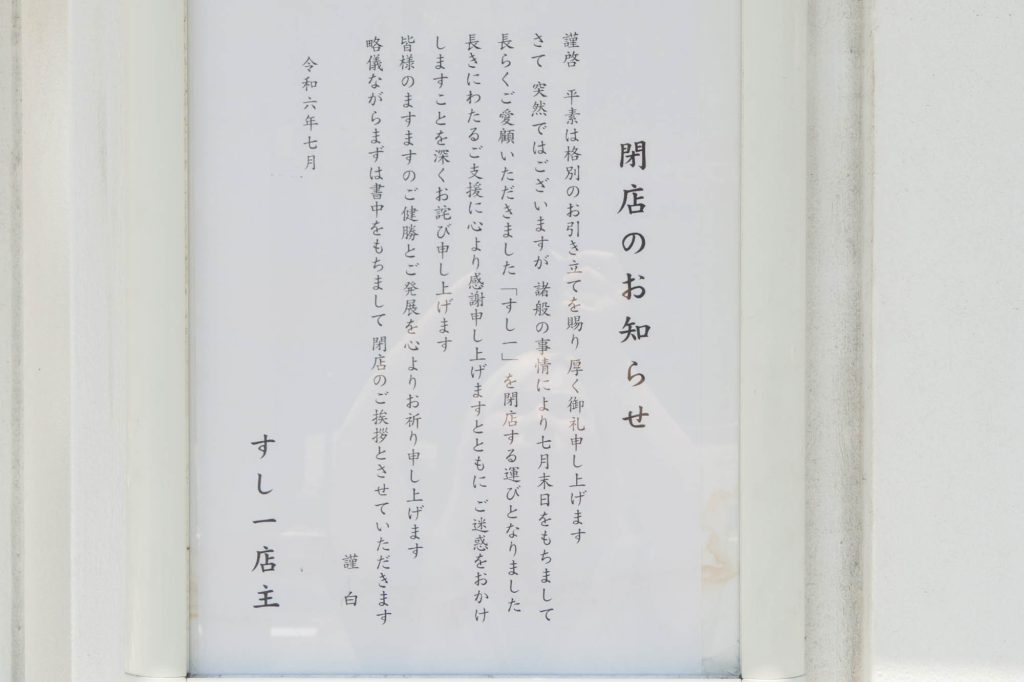 閉店のお知らせ
謹啓　平素は格別のお引き立てを賜り 厚く御礼申し上げます
さて 突然ではございますが 諸般の事情により七月末日をもちまして
長らくご愛顧いただきました「すし一」を閉店する運びとなりました
長きにわたるご支援に心より感謝申し上げますとともに ご迷惑をおかけ
しますことを深くお詫び申し上げます
皆様のますますのご健勝とご発展を心よりお祈り申し上げます
略儀ながらまずは書中をもちまして 閉店のご挨拶とさせていただきます
謹白
令和六年七月
すし一店主